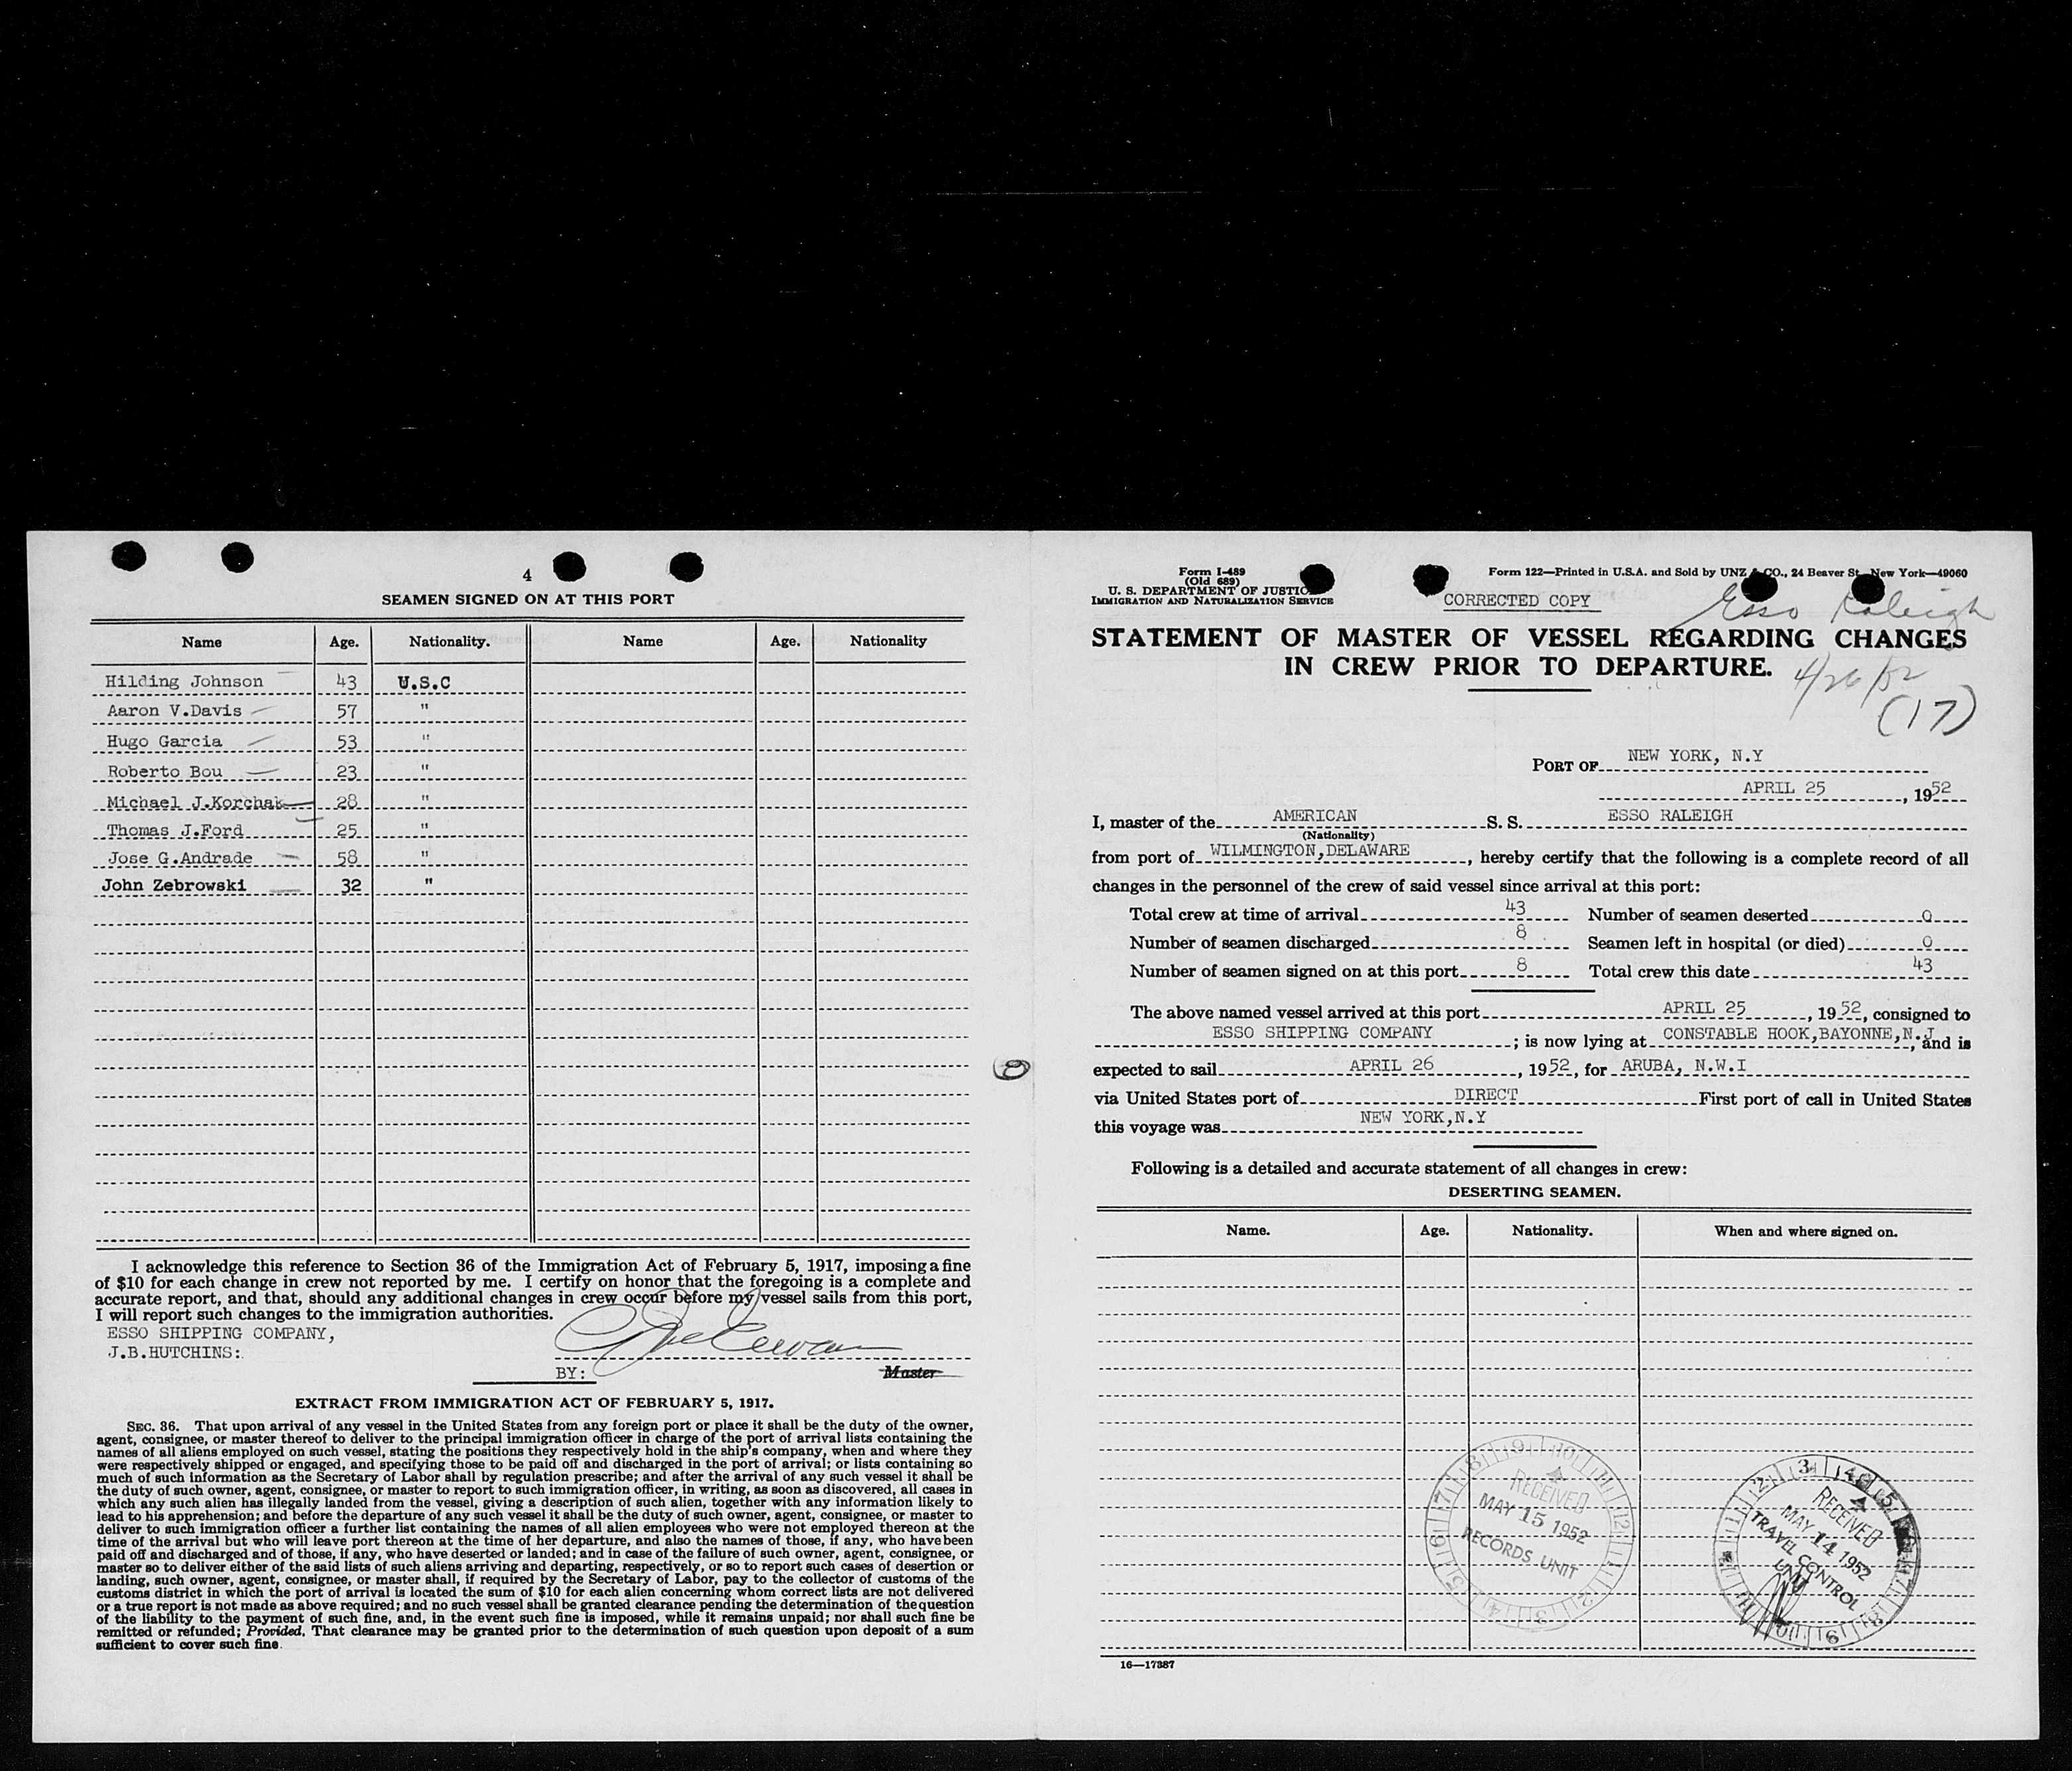 4
SEAMEN SIGNED ON AT THIS PORT
Name Age. Nationality. Name Age. Nationality
Hilding Johnson 43 U.S.C
Aaron V.Davis 57 "
Hugo Garcia 53 "
Roberto Bou 23 "
Michael J.Korchak 28 "
Thomas J.Ford 25 "
Jose G.Andrade 58 "
John Zebrowski 32 "
I acknowledge this reference to Section 36 of the Immigration Act of February 5, 1917, imposing a fine
of $10 for each change in crew not reported by me. I certify on honor that the foregoing is a complete and
accurate report, and that, should any additional changes in crew occur before my vessel sails from this port,
I will report such changes to the immigration authorities.
ESSO SHIPPING COMPANY,
J.B.HUTCHINS:
BY: Master
EXTRACT FROM IMMIGRATION ACT OF FEBRUARY 5, 1917.
SEC. 36. That upon arrival of any vessel in the United States from any foreign port or place it shall be the duty of the owner,
agent, consignee, or master thereof to deliver to the principal immigration officer in charge of the port of arrival lists containing the
names of all aliens employed on such vessel, stating the positions they respectively hold in the ship's company, when and where they
were respectively shipped or engaged, and specifying those to be paid off and discharged in the port of arrival; or lists containing so
much of such information as the Secretary of Labor shall by regulation prescribe; and after the arrival of any such vessel it shall be
the duty of such owner, agent, consignee, or master to report to such immigration officer, in writing, as soon as discovered, all cases in
which any such alien has illegally landed from the vessel, giving a description of such alien, together with any information likely to
lead to his apprehension; and before the departure of any such vessel it shall be the duty of such owner, agent, consignee, or master to
deliver to such immigration officer a further list containing the names of all alien employees who were not employed thereon at the
time of the arrival but who will leave port thereon at the time of her departure, and also the names of those, if any, who have been
paid off and discharged and of those, if any, who have deserted or landed; and in case of the failure of such owner, agent, consignee, or
master so to deliver either of the said lists of such aliens arriving and departing, respectively, or so to report such cases of desertion or
landing, such owner, agent, consignee, or master shall, if required by the Secretary of Labor, pay to the collector of customs of the
customs district in which the port of arrival is located the sum of $10 for each alien concerning whom correct lists are not delivered
or a true report is not made as above required; and no such vessel shall be granted clearance pending the determination of the question
of the liability to the payment of such fine, and, in the event such fine is imposed, while it remains unpaid; nor shall such fine be
remitted or refunded; Provided, That clearance may be granted prior to the determination of such question upon deposit of a sum
sufficient to cover such fine.
8
Form I-489
(Old 689)
U. S. DEPARTMENT OF JUSTIC
IMMIGRATION AND NATURALIZATION SERVICE
Form 122—Printed in U.S.A. and Sold by UNZ & CO., 24 Beaver St., New York—49060
CORRECTED COPY
Esso Raleigh
STATEMENT OF MASTER OF VESSEL REGARDING CHANGES
IN CREW PRIOR TO DEPARTURE.
4/26/52
(17)
PORT OF NEW YORK, N.Y
APRIL 25, 1952
I, master of the AMERICAN S. S. ESSO RALEIGH
(Nationality)
from port of WILMINGTON,DELAWARE, hereby certify that the following is a complete record of all
changes in the personnel of the crew of said vessel since arrival at this port:
Total crew at time of arrival 43 Number of seamen deserted 0
Number of seamen discharged 8 Seamen left in hospital (or died) 0
Number of seamen signed on at this port 8 Total crew this date 43
The above named vessel arrived at this port APRIL 25, 1952, consigned to
ESSO SHIPPING COMPANY; is now lying at CONSTABLE HOOK,BAYONNE,N.J, and is
expected to sail APRIL 26, 1952, for ARUBA, N.W.I
via United States port of DIRECT First port of call in United States
this voyage was NEW YORK,N.Y
Following is a detailed and accurate statement of all changes in crew:
DESERTING SEAMEN.
Name. Age. Nationality. When and where signed on.
RECEIVED
MAY 15 1952
RECORDS UNIT
RECEIVED
MAY 14 1952
TRAVEL CONTROL
UNIT
16—17387